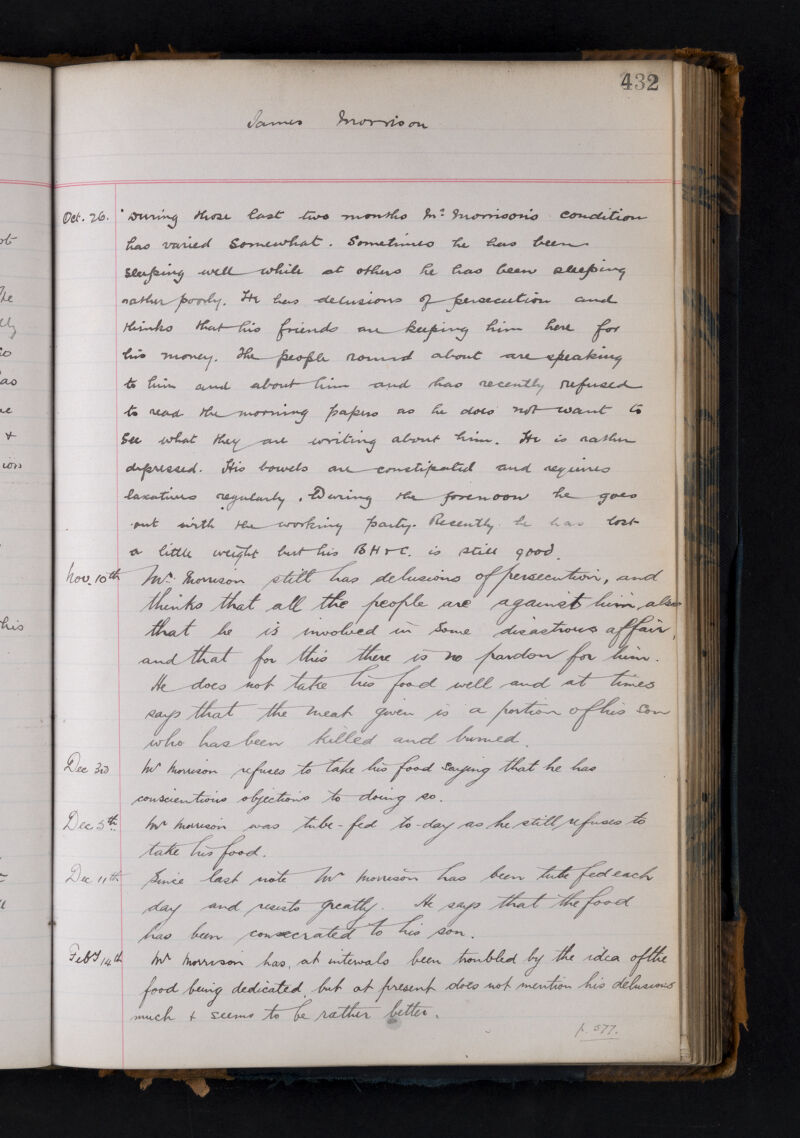 432
James Morrison
Oct. 26. During those last two months Mr. Morrison's condition
has varied somewhat. Sometimes he has been
sleeping well while at others he has been sleeping
rather poorly. He has delusions of persecution and
thinks that his friends are keeping him here for
his money. The people round about are speaking
to him and about him and has recently refused
to read the morning papers as he does not want to
see what they are writing about him. He is rather
depressed. His bowels are constipated and requires
laxatives regularly. During the forenoon he goes
out with the working party. Recently he has lost
a little weight but his B H & C. is still good.
Nov. 10th Mr. Morrison still has delusions of persecution, and
thinks that all the people are against him, also
that he is involved in some disastrous affair,
and that for this there is no pardon for him.
He does not take his food well and at times
says that the meat given is a portion of his son
who has been killed and burned.
Dec 3rd Mr Morrison refuses to take his food saying that he has
conscientious objections to doing so.
Dec 5th. Mr Morrison was tube-fed to-day as he still refuses to
take his food.
Dec 11th Since last note Mr Morrison has been tube fed each
day and resists greatly. He says that the food
has been consecrated to his son.
Feby 14th Mr Morrison has, at intervals been troubled by the idea of the
food being dedicated, but at present does not mention his delusions
much & seems to be rather better.
p. 577.